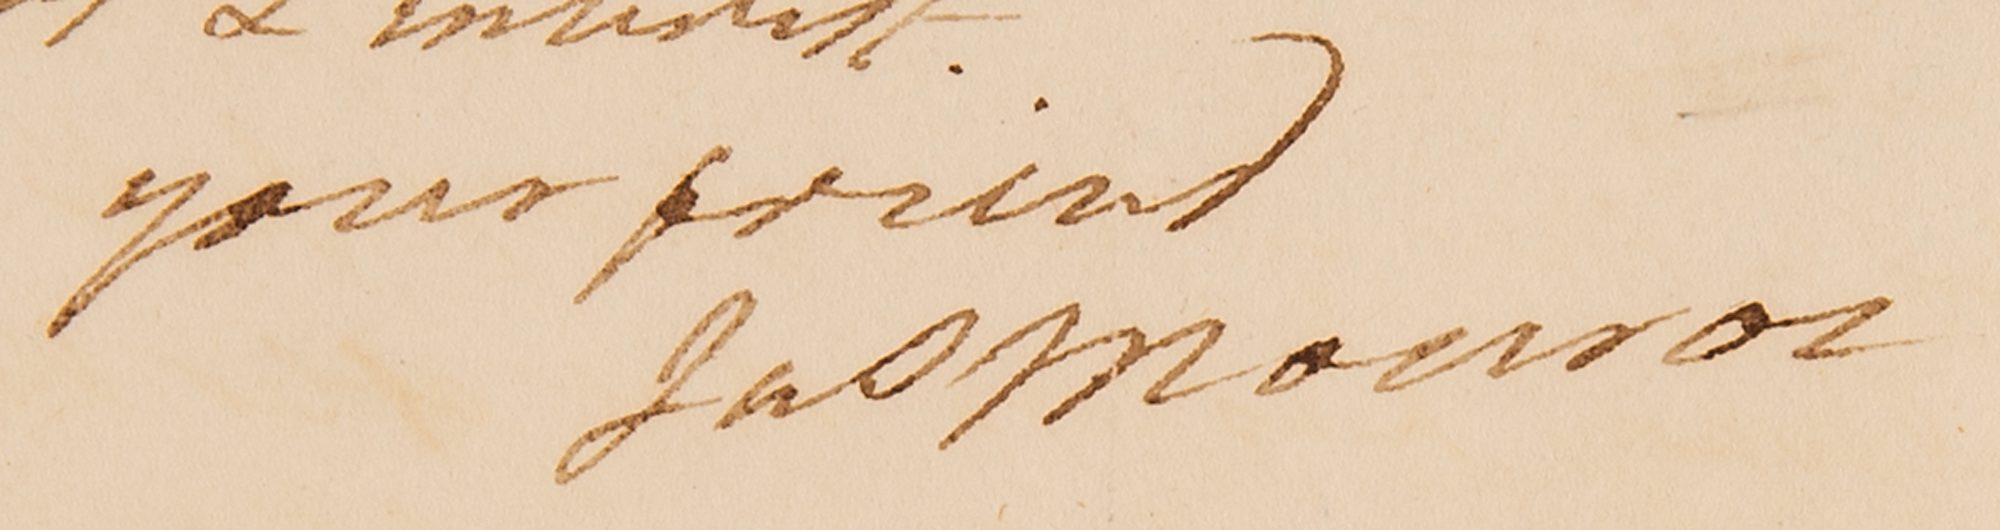 & interest.
your friend
Jas Monroe